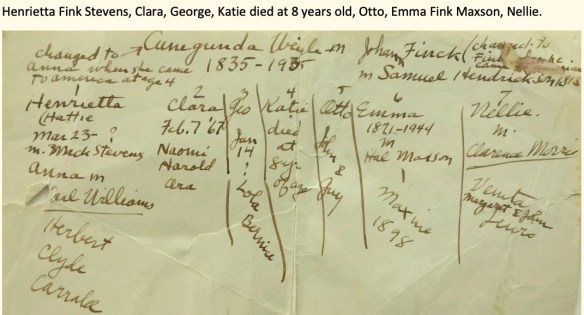 Henrietta Fink Stevens, Clara, George, Katie died at 8 years old, Otto, Emma Fink Maxson, Nellie.
changed to → Cunegunda m Johan Finck (changed to
anna when she came 1835-1935 Fink when he
to america at age 4 came
m Samuel Hendrickson
1 2 3 4 5 6 7
Henrietta Clara Geo Katie Otto Emma Nellie
(Hattie Feb. 7 '67 Jan died Jan 1871-1944 m.
Mar 23- ? 14 at 8 m Clarence
m. Meck Stevens Naomi ? 8 yr Guy Hal Maxson
Anna m Harold Lora of age Maxine Veneta
Carl Williams Ora Bernice 1898 Margaret & John
Lewis
Herbert
Clyde